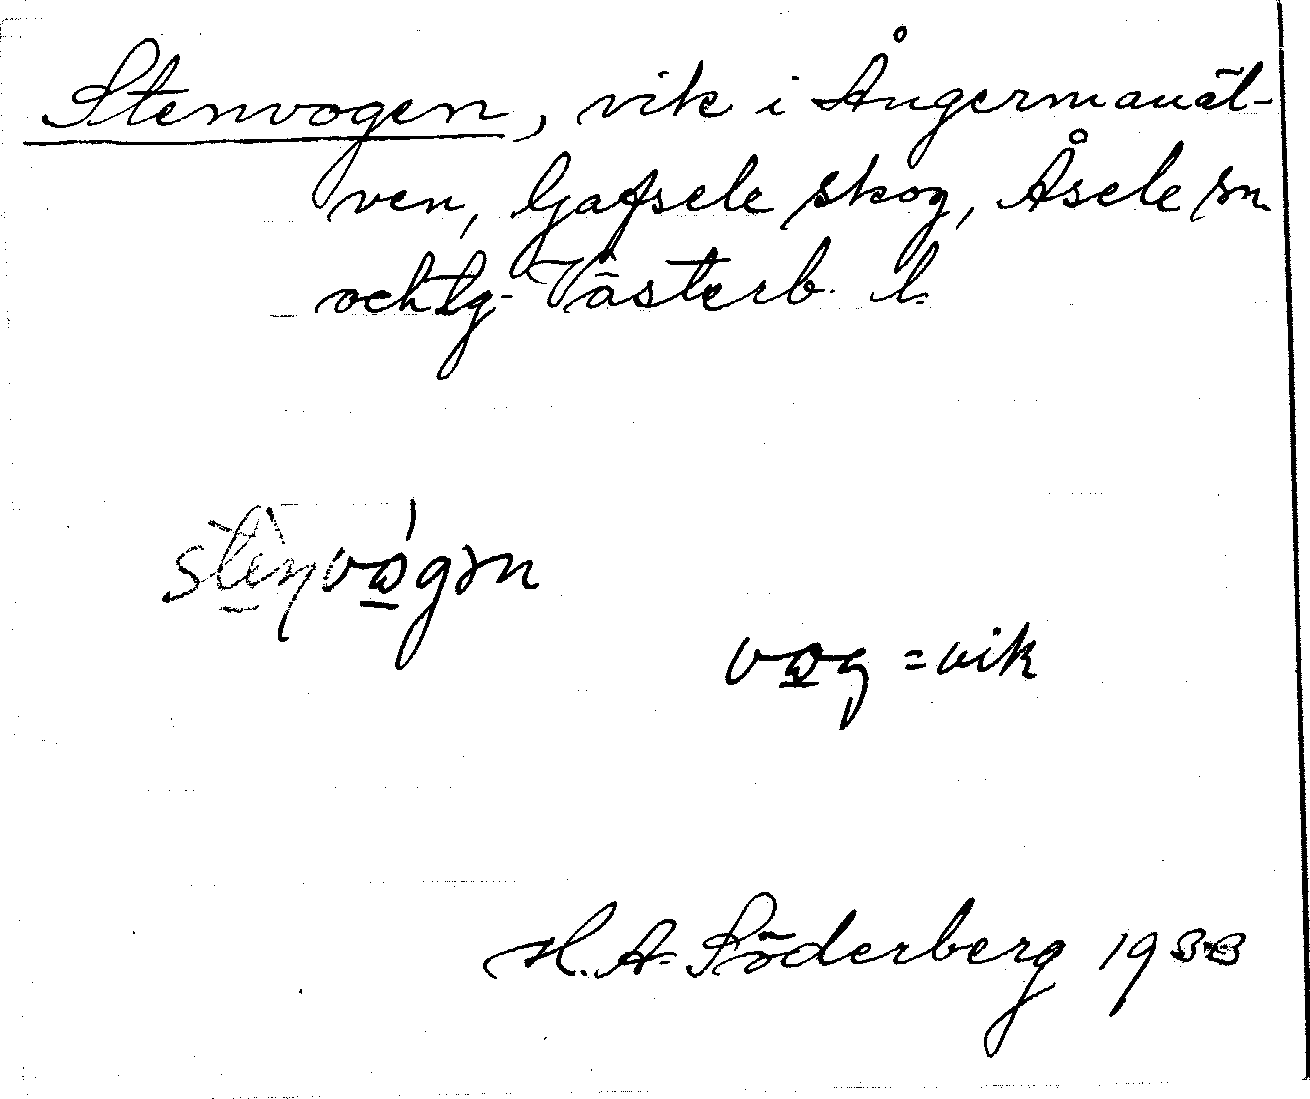 Stenvogen, vik i Ångermanäl-
ven, Gafsele skog, Åsele sn
och tg. Västerb. l.
vog = vik
H. A. Söderberg 1933